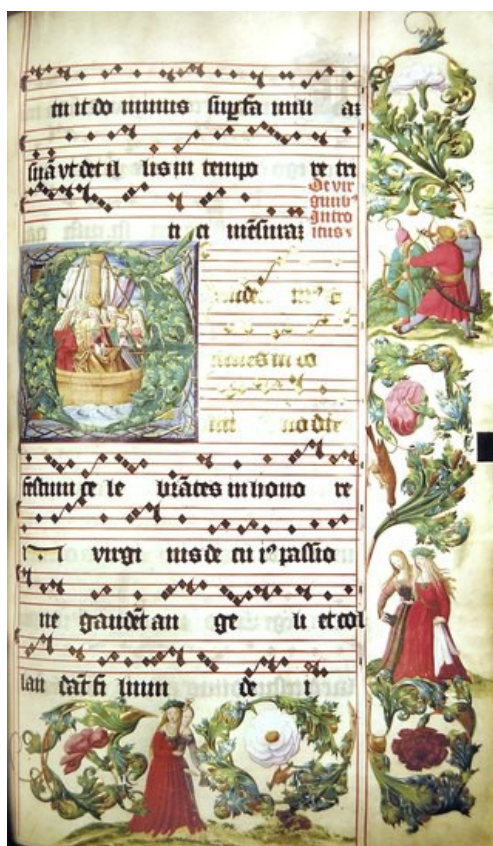 tu it do minus sup fa mili aꝫ
suā vt det il lis in tempo re tri
De vir
ginibꝰ
Intro
itus
ti ci mēsuraꝫ
mnes in do
mi no die
festum ce le brātes in hono re
virgi nis de cu iꝰ passio
ne gaudēt an ge li et col
lau dāt fi lium de i